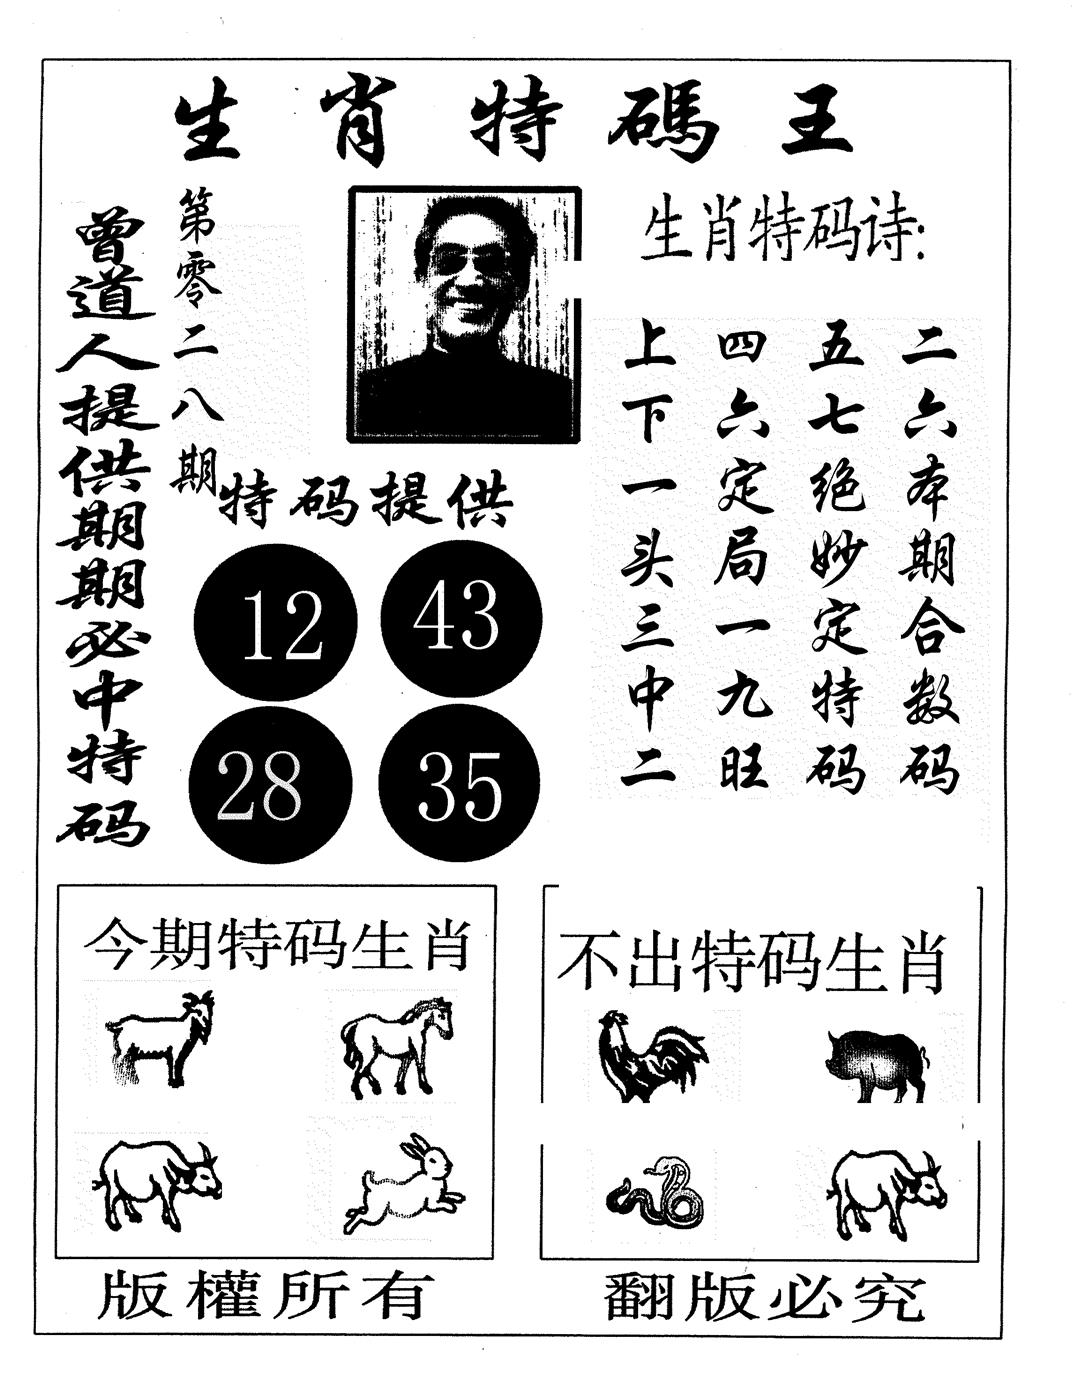 生肖特碼王
曾道人提供期期必中特码
第零二八期
生肖特码诗:
二六本期合数码
五七绝妙定特码
四六定局一九旺
上下一头三中二
特码提供
12 43
28 35
今期特码生肖
不出特码生肖
版權所有
翻版必究